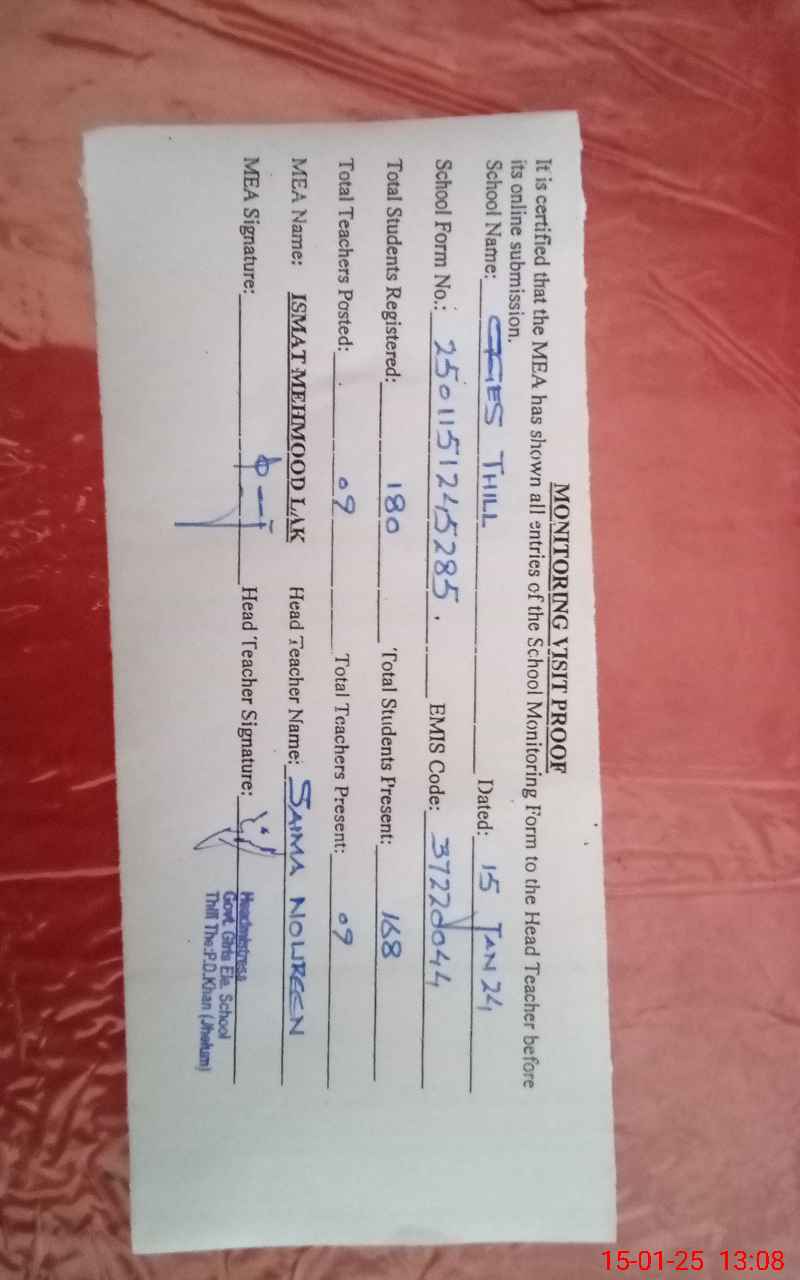 MONITORING VISIT PROOF
It is certified that the MEA has shown all entries of the School Monitoring Form to the Head Teacher before
its online submission.
School Name: GGES THILL Dated: 15 JAN 24
School Form No.: 2501151245285. EMIS Code: 37220044
Total Students Registered: 180 Total Students Present: 168
Total Teachers Posted: 09 Total Teachers Present: 09
MEA Name: ISMAT MEHMOOD LAK Head Teacher Name: SAIMA NOUREEN
MEA Signature: Head Teacher Signature:
Headmistress
Govt. Girls Ele. School
Thill The:P.D.Khan (Jhelum)
15-01-25 13:08